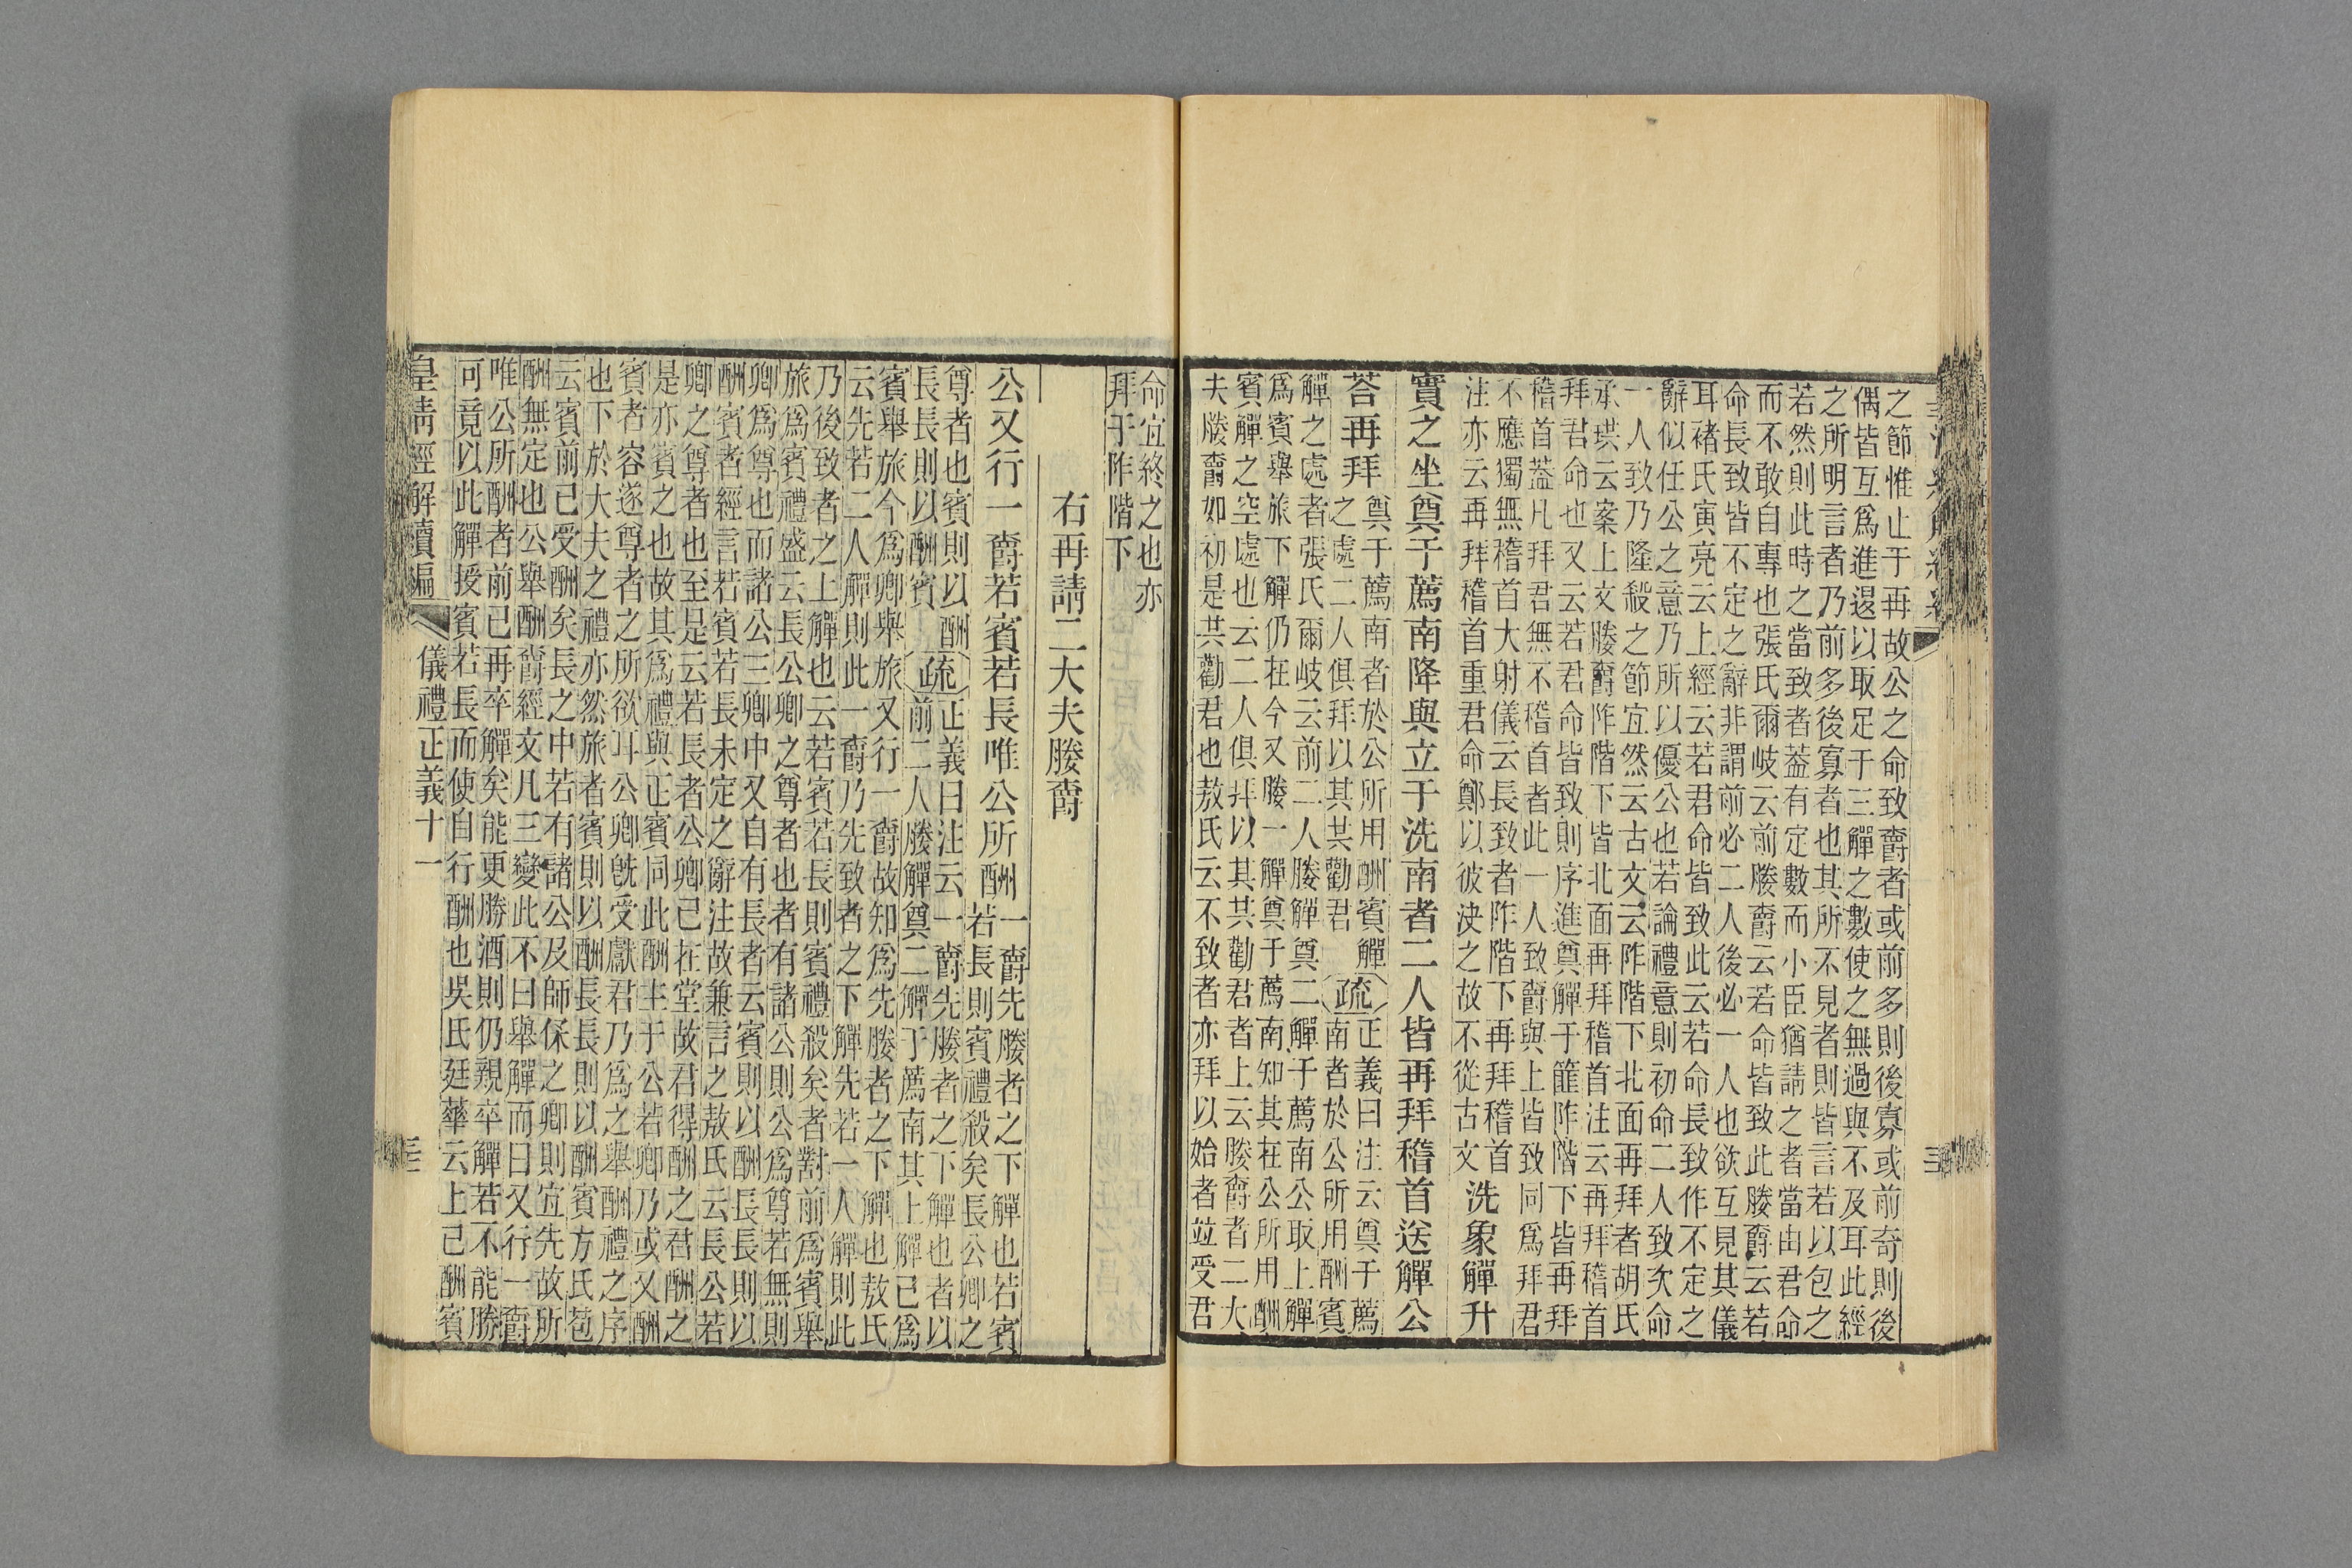 之節惟止于再故公之命致爵者或前多則後寡或前奇則後
偶皆互爲進退以取足于三觶之數使之無過與不及耳此經
之所明言者乃前多後寡者也其所不見者則皆言若以包之
若然則此時之當致者葢有定數而小臣猶請之者當由君命
而不敢自專也張氏爾岐云前媵爵云若命皆致此媵爵云若
命長致皆不定之辭非謂前必二人後必一人也欲互見其儀
耳褚氏寅亮云上經云若君命皆致此云若命長致作不定之
辭似任公之意乃所以優公也若論禮意則初命二人致次命
一人致乃隆殺之節宜然云古文云阼階下北面再拜者胡氏
承珙云案上文媵爵阼階下皆北面再拜稽首注云再拜稽首
拜君命也又云若君命皆致則序進奠觶于篚阼階下皆再拜
稽首葢凡拜君無不稽首者此一人致爵與上皆致同爲拜君
不應獨無稽首大射儀云長致者阼階下再拜稽首
注亦云再拜稽首重君命鄭以彼決之故不從古文
洗象觶升
實之坐奠于薦南降與立于洗南者二人皆再拜稽首送觶公
荅再拜
奠于薦南者於公所用酬賓觶
之處二人俱拜以其共勸君
疏
正義曰注云奠于薦
南者於公所用酬賓
觶之處者張氏爾岐云前二人媵觶奠二觶于薦南公取上觶
爲賓舉旅下觶仍在今又媵一觶奠于薦南知其在公所用酬
賓觶之空處也云二人俱拜以其共勸君者上云媵爵者二大
夫媵爵如初是共勸君也敖氏云不致者亦拜以始者竝受君
命宜終之也亦
拜于阼階下
右再請二大夫媵爵
公又行一爵若賓若長唯公所酬
一爵先媵者之下觶也若賓
若長則賓禮殺矣長公卿之
尊者也賓則以酬
長長則以酬賓
疏
正義曰注云一爵先媵者之下觶也者以
前二人媵觶奠二觶于薦南其上觶已爲
賓舉旅今爲卿舉旅又行一爵故知爲先媵者之下觶也敖氏
云先若二人觶則此一爵乃先致者之下觶先若一人觶則此
乃後致者之上觶也云若賓若長則賓禮殺矣者對前爲賓舉
旅爲賓禮盛云長公卿之尊者也者有諸公則公爲尊若無則
卿爲尊也而諸公三卿中又自有長者云賓則以酬長長則以
酬賓者經言若賓若長未定之辭注故兼言之敖氏云長公若
卿之尊者也至是云若長者公卿已在堂故君得酬之君酬之
是亦賓之也故其爲禮與正賓同此酬主于公若卿乃或又酬
賓者容遂尊者之所欲耳公卿旣受獻君乃爲之舉酬禮之序
也下於大夫之禮亦然旅者賓則以酬長長則以酬賓方氏苞
云賓前已受酬矣長之中若有諸公及師保之卿則宜先故所
酬無定也公舉酬爵經文凡三變此不曰舉觶而曰又行一爵
唯公所酬者前已再卒觶矣能更勝酒則仍親卒觶若不能勝
可竟以此觶授賓若長而使自行酬也吳氏廷華云上已酬賓
皇淸經解續編
儀禮正義十一